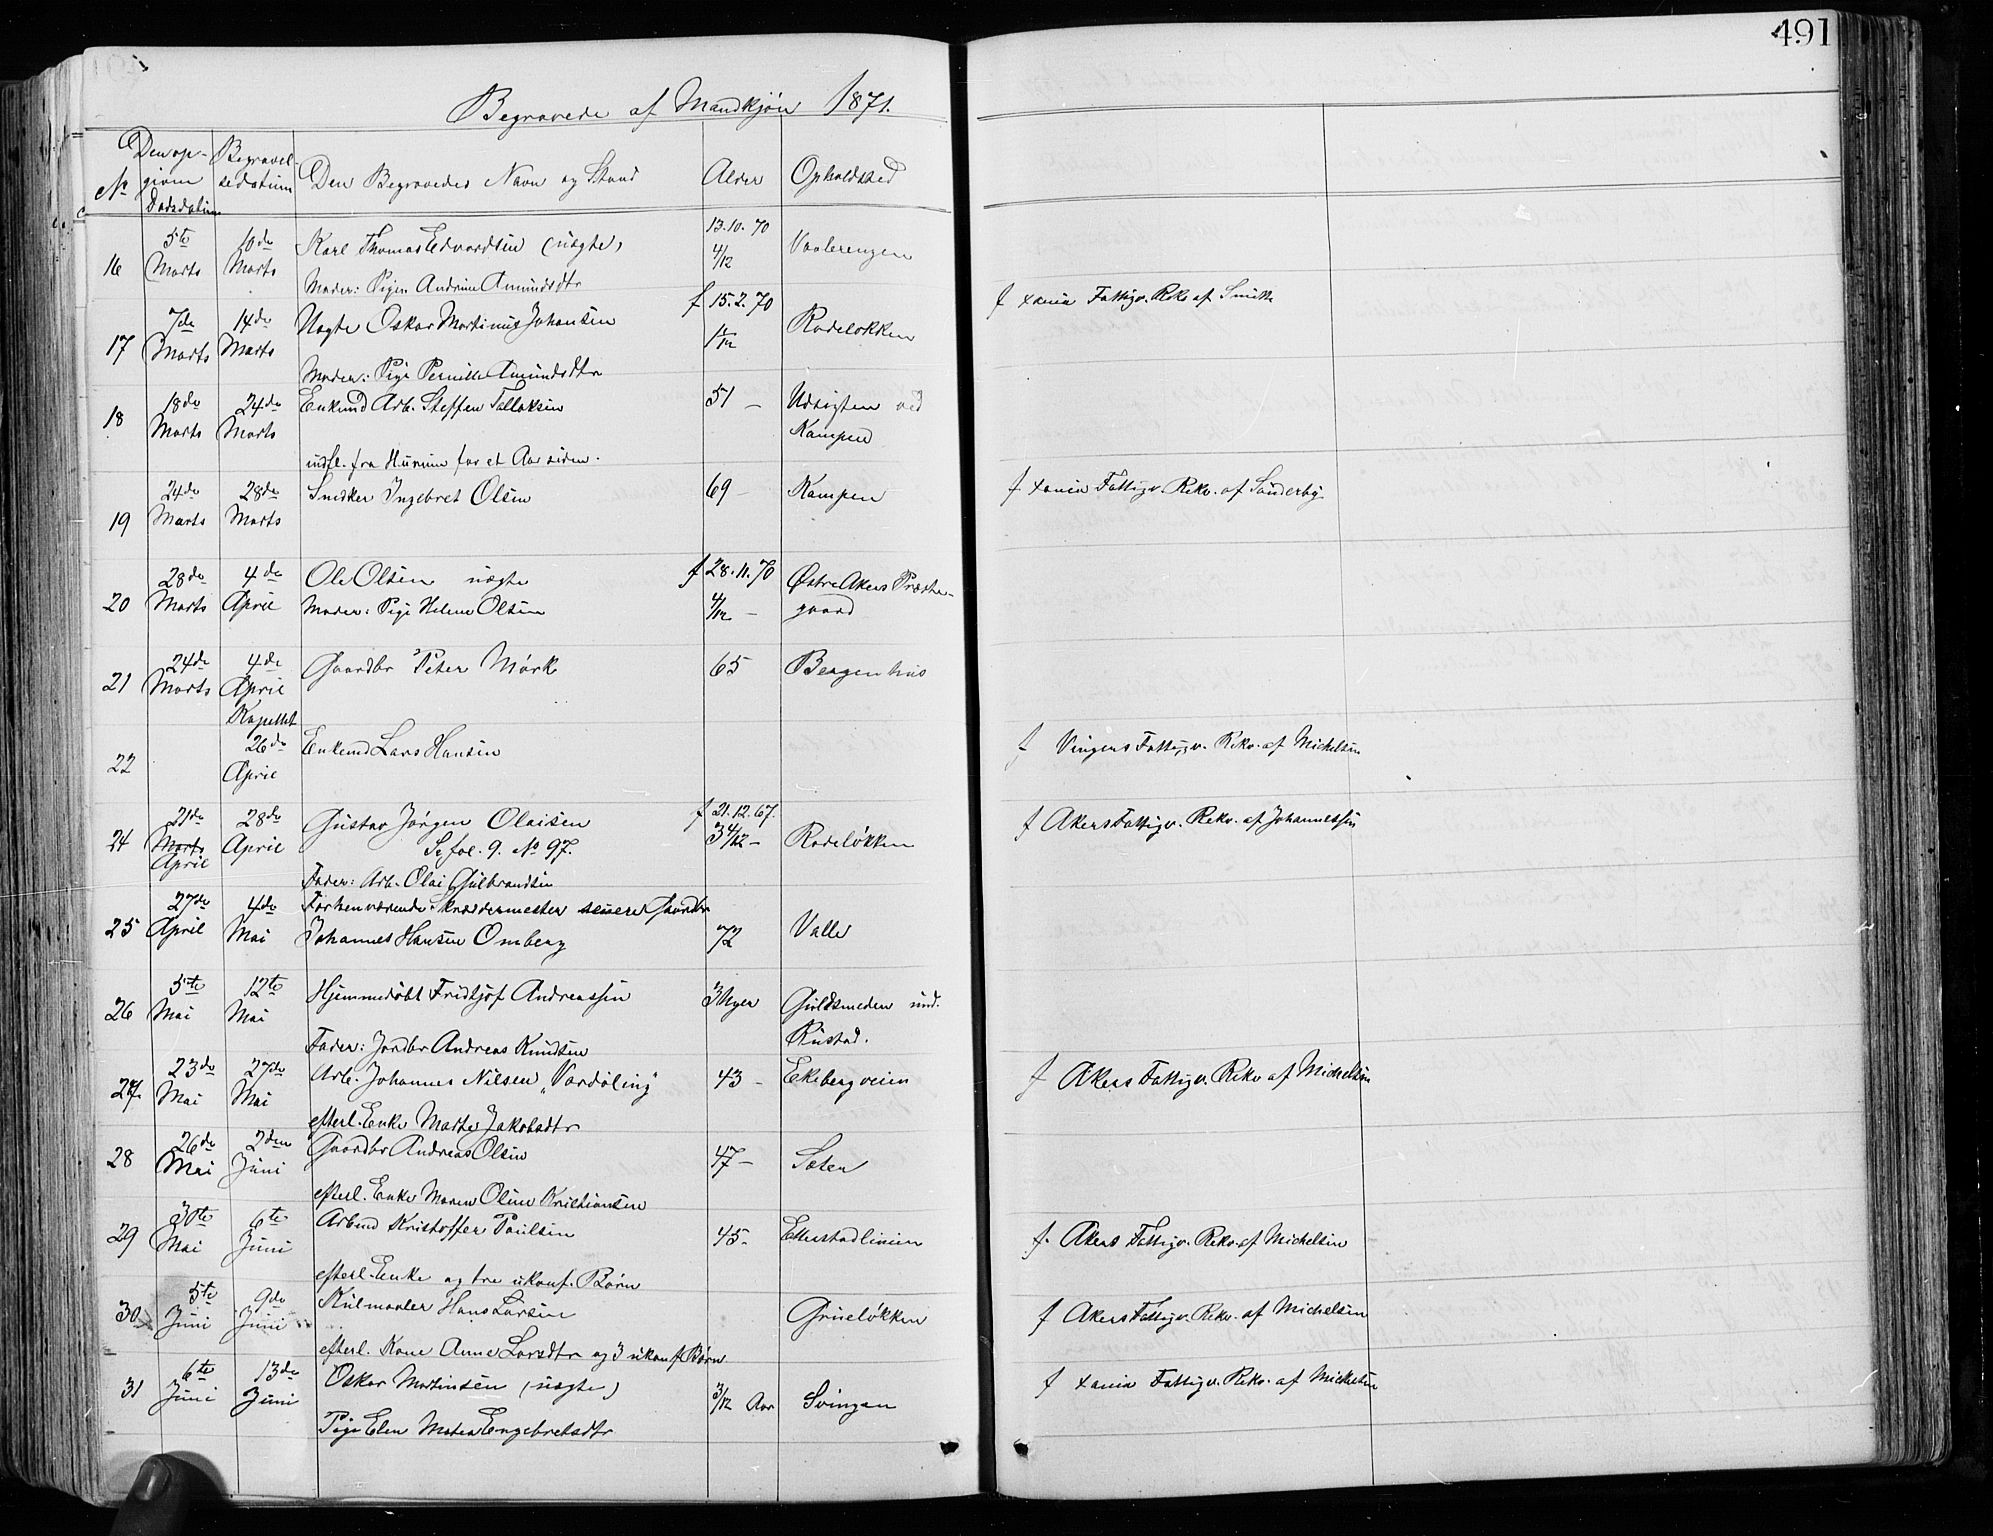 491
Begravede af Mandkjøn 1871.
No Den op- givne Dødsdatum Begravel- sedatum Den Begravedes Navn og Stand Alder Opholdssted
16 5te Marts 10de Marts Karl Thomas Edvardsen (uægte) 13.10.70 4/12 Vaalerengen
Moder: Pigen Andrine Amundsdtr
17 7de Marts 14de Marts Uægte Oskar Martinius Johansen f 15.2.70 1 1/12 Rodeløkken f Xania Fattigv. Rekv af Smith
Moder: Pige Pernille Amundsdtr
18 18de Marts 24de Marts Enkemd Arb. Steffen Tollaksen 51 – Udsigten ved Kampen
indfl. fra Hurum for et Aar siden.
19 24de Marts 28de Marts Snedker Ingebret Olsen 69 – Kampen f. Xania Fattigv. Rekv. af Sønderby
20 28de Marts 4de April Ole Olsen uægte f 28.11.70 4/12 – Østre Akers Præste- gaard
Moder: Pige Helene Olsen
21 24de Marts 4de April Kapellet Gaardbr Peter Mørk 65 Bergenhus
22 26de April Enkemd Lars Hansen f Vingers Fattigv. Rekv. af Michelsen
24 21de Marts April 28de April Gustav Jørgen Olaisen f 21.12.67. 3 4/12 – Rodeløkken f Akers Fattigv. Rekv. af Johannessen
Se fol. 9. No 97.
Fader: Arb. Olai Gulbrandsen
25 27de April 4de Mai Forhenværende Skræddermester senere Gaardbr
Johannes Hansen Omberg 72 Valle
26 5te Mai 12te Mai Hjemmedøbt Fridtjof Andreassen 3 Uger Guldsmeden und. Rustad.
Fader: Jordbr Andreas Knudsen
27 23de Mai 27de Mai Arb. Johannes Nilsen „Vardøling" 43 – Ekebergveien f Akers Fattigv. Rekv af Michelsen
efterl. Enke Marte Jakobsdtr
28 26de Mai 2den Juni Gaardbr Andreas Olsen 47 – Seter
efterl. Enke Maren Oline Kristiansen
29 30te Mai 6te Juni Arbmd Kristoffer Paulsen 45 – Etterstadlinien f. Akers Fattigv. Rekv. af Michelsen
efterl. Enke og tre ukonf. Børn
30 5te Juni 9de Juni Kulmaaler Hans Larsen Grueløkken f Akers Fattigv. Rekv. af Michelsen
efterl. Kone Anne Larsdtr og 3 ukonf Børn
31 6te Juni 13de Juni Oskar Martinsen (uægte) 3/12 Aar Svingen f Xania Fattigv. Rekv. af Michelsen
Pige Elen Matea Engebretsdtr